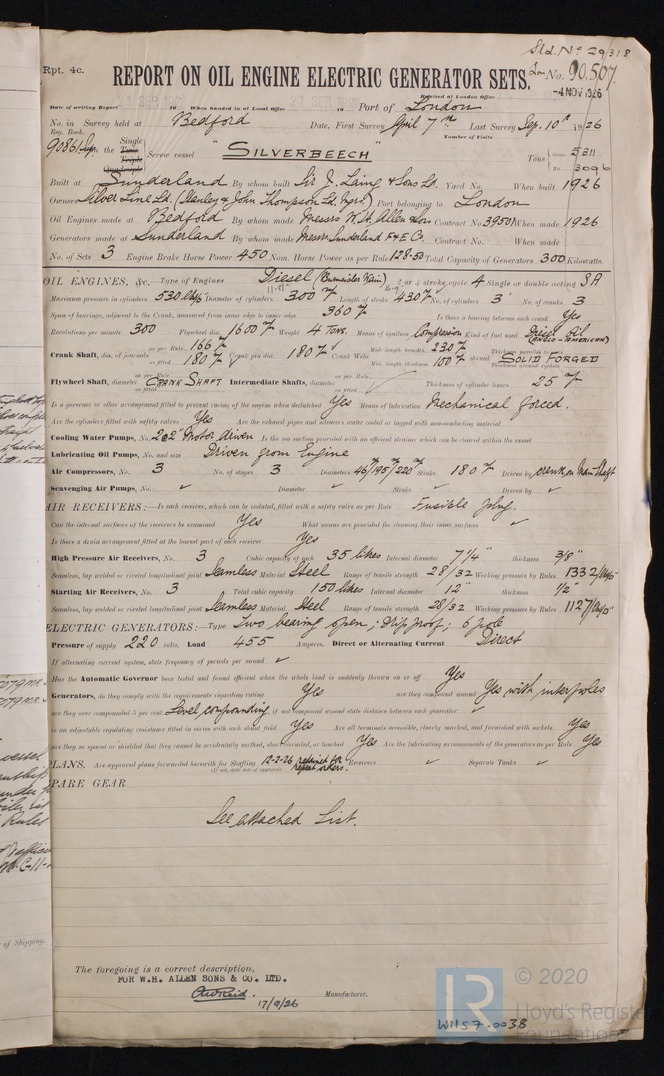 Sld. No 29318
Rpt. 4c.
REPORT ON OIL ENGINE ELECTRIC GENERATOR SETS.
Lon No. 90.507
Received at London Office
-4 NOV 1926
Date of writing Report 19 When handed in at Local Office 19 Port of London
No. in Survey held at Bedford Date, First Survey April 7th Last Survey Sep. 10th 1926
Reg. Book. Number of Visits
90861 Sup. on the Single Screw vessel "SILVERBEECH" Tons Gross 5311
Net 3096
Built at Sunderland By whom built Sir J. Laing & Sons Ld. Yard No. When built 1926
Owners Silver Line Ld. (Stanley & John Thompson Ld. Mgrs.) Port belonging to London
Oil Engines made at Bedford By whom made Messrs W.H. Allen & Son Contract No. 39501 When made 1926
Generators made at Sunderland By whom made Messrs Sunderland F & E Co. Contract No. When made
No. of Sets 3 Engine Brake Horse Power 450 Nom. Horse Power as per Rule 128.50 Total Capacity of Generators 300 Kilowatts.
OIL ENGINES, &c.—Type of Engines Diesel (Burmeister & Wain) 2 or 4 stroke cycle 4 Single or double acting SA
Maximum pressure in cylinders 530 lbs/□" Diameter of cylinders 300 m/m Length of stroke 430 m/m No. of cylinders 3 No. of cranks 3
Span of bearings, adjacent to the Crank, measured from inner edge to inner edge 360 m/m Is there a bearing between each crank Yes
Revolutions per minute 300 Flywheel dia. 1600 m/m Weight 4 Tons. Means of ignition Compression Kind of fuel used Diesel Oil (ANGLO-AMERICAN)
Crank Shaft, dia. of journals as per Rule 166 m/m as fitted 180 m/m Crank pin dia. 180 m/m Crank Webs Mid. length breadth 230 m/m Mid. length thickness 100 m/m shrunk Thickness parallel to axis SOLID FORGED Thickness around eyehole
Flywheel Shaft, diameter as per Rule as fitted CRANK SHAFT Intermediate Shafts, diameter as per Rule as fitted Thickness of cylinder liners 25 m/m
Is a governor or other arrangement fitted to prevent racing of the engine when declutched Yes Means of lubrication Mechanical forced.
Are the cylinders fitted with safety valves Yes Are the exhaust pipes and silencers water cooled or lagged with non-conducting material
Cooling Water Pumps, No. 2 Motor driven Is the sea suction provided with an efficient strainer which can be cleared within the vessel
Lubricating Oil Pumps, No. and size Driven from Engine
Air Compressors, No. 3 No. of stages 3 Diameters 46/195/220 m/m Stroke 180 m/m Driven by crank on Main Shaft
Scavenging Air Pumps, No. ✓ Diameter ✓ Stroke ✓ Driven by ✓
AIR RECEIVERS:—Is each receiver, which can be isolated, fitted with a safety valve as per Rule Fusible plug.
Can the internal surfaces of the receivers be examined Yes What means are provided for cleaning their inner surfaces ✓
Is there a drain arrangement fitted at the lowest part of each receiver Yes
High Pressure Air Receivers, No. 3 Cubic capacity of each 35 litres Internal diameter 7¼" thickness 3/8"
Seamless, lap welded or riveted longitudinal joint Seamless Material Steel Range of tensile strength 28/32 Working pressure by Rules 1332 lbs/□"
Starting Air Receivers, No. 3 Total cubic capacity 150 litres Internal diameter 12" thickness ½"
Seamless, lap welded or riveted longitudinal joint Seamless Material Steel Range of tensile strength 28/32 Working pressure by Rules 1127 lbs/□"
ELECTRIC GENERATORS:—Type Two bearing open, Drip proof; 6 pole
Pressure of supply 220 volts. Load 455 Amperes. Direct or Alternating Current Direct
If alternating current system, state frequency of periods per second ✓
Has the Automatic Governor been tested and found efficient when the whole load is suddenly thrown on or off Yes
Generators, do they comply with the requirements regarding rating Yes are they compound wound Yes with interpoles
are they over compounded 5 per cent. Level compounding, if not compound wound state distance between each generator ✓
is an adjustable regulating resistance fitted in series with each shunt field Yes Are all terminals accessible, clearly marked, and furnished with sockets Yes
are they so spaced or shielded that they cannot be accidentally earthed, short circuited, or touched Yes Are the lubricating arrangements of the generators as per Rule Yes
PLANS. Are approved plans forwarded herewith for Shafting 12-2-26 retained for repeat orders. Receivers ✓ Separate Tanks ✓
(If not, state date of approval)
SPARE GEAR
See attached List.
The foregoing is a correct description,
FOR W.H. ALLEN SONS & CO. LTD.
17/9/26 Manufacturer.
of Shipping.
© 2020
Lloyd's Register
Foundation
W1157-0038